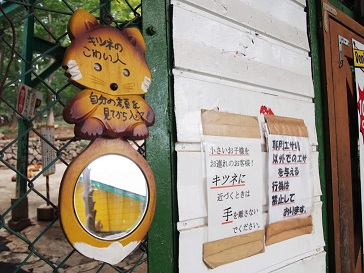 キツネの
こわい人
自分の顔を
見てから入って
小さいお子様を
お連れのお客様!
キツネに
近づくときは
手を離さない
でください。
専用エサ
以外でのエサ
を与える
行為は
禁止して
おります。